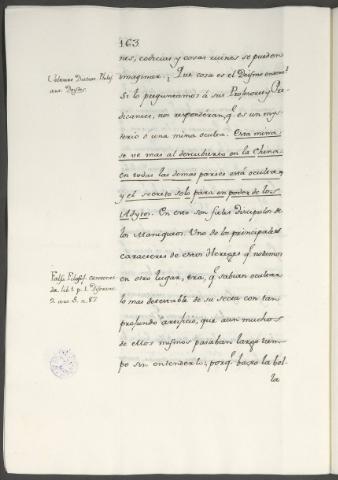 163
nes, codicias y cosas ruines se pueden
imaginar. ¿Que cosa es el Deismo entero?
Si lo preguntamos á sus Profesores y Pre-
dicantes, nos responderán, qe es un mys-
terio ó una mina oculta. Esta mina
se ve mas al descubierto en la China
en todas las demas partes está oculta,
y el secreto solo para en poder de los
Adytos. En esto son fieles discipulos de
los Maniqueos. Uno de los principales
caracteres de estos Hereges qe notamos
en otro lugar, era, qe sabian ocultar
lo mas detestable de su secta con tan
profundo artificio, que aun muchos
de ellos mismos pasaban largo tiem-
po sin entenderlo; porqe baxo la bel-
la
Voltaire Diction. Philos.
art. Deistes.
Falsa Filosof.
da lib. 1 p. 1. Disertac.
2 art. 5. n. 87